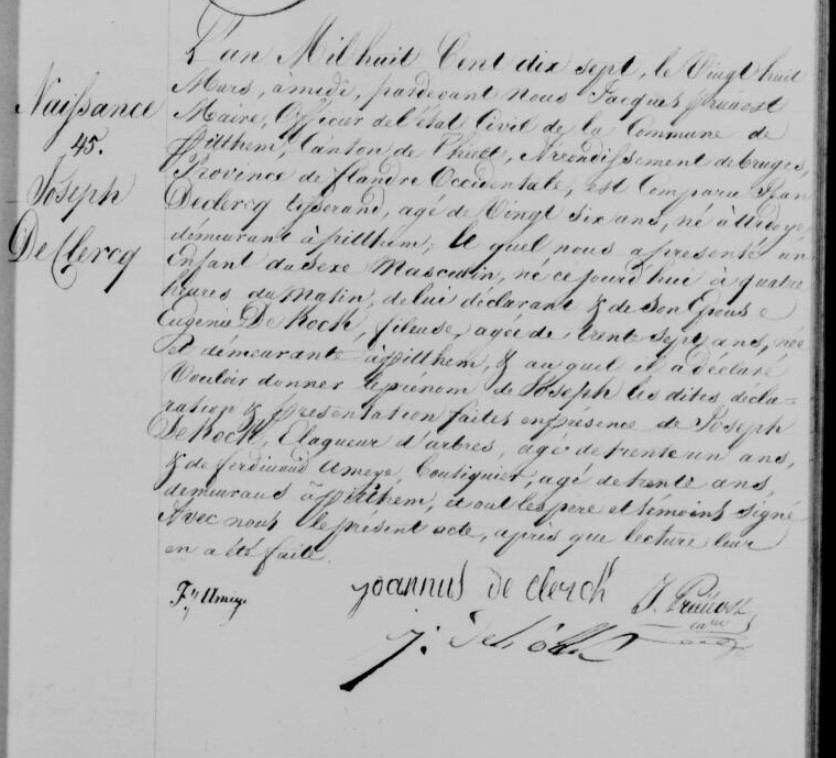 Naissance
45.
Joseph
De Clercq
L'an Mil huit Cent dix sept, le Vingt huit
Mars, à midi, pardevant nous Jacques Pruvost
Maire, Officier de l'état Civil de la Commune de
Pitthem, Canton de Thielt, Arrondissement de bruges,
Province de flandre Occidentale, est Comparu Jean
Declercq tisserand, agé de Vingt six ans, né à Ardoye,
démeurant à pitthem, le quel nous a presenté un
Enfant du Sexe Masculin, né ce jourd'hui à quatre
heures du Matin, de lui déclarant & de Son Epouse
Eugenie De Kock, fileuse, agée de trente sept ans, née
et démeurante à pitthem, & au quel il a déclaré
Vouloir donner le prénom de Joseph les dites décla=
ration & présentation faites en présence de Joseph
DeKock, Elagueur d'arbres, agé de trente un ans,
& de ferdinand Ameye, boutiquier, agé de trente ans,
demeurans à pitthem, et ont les père et témoins signé
Avec nous le présent acte, après que lecture leur
en a été faite.
joannus de clerck
J. Pruvost